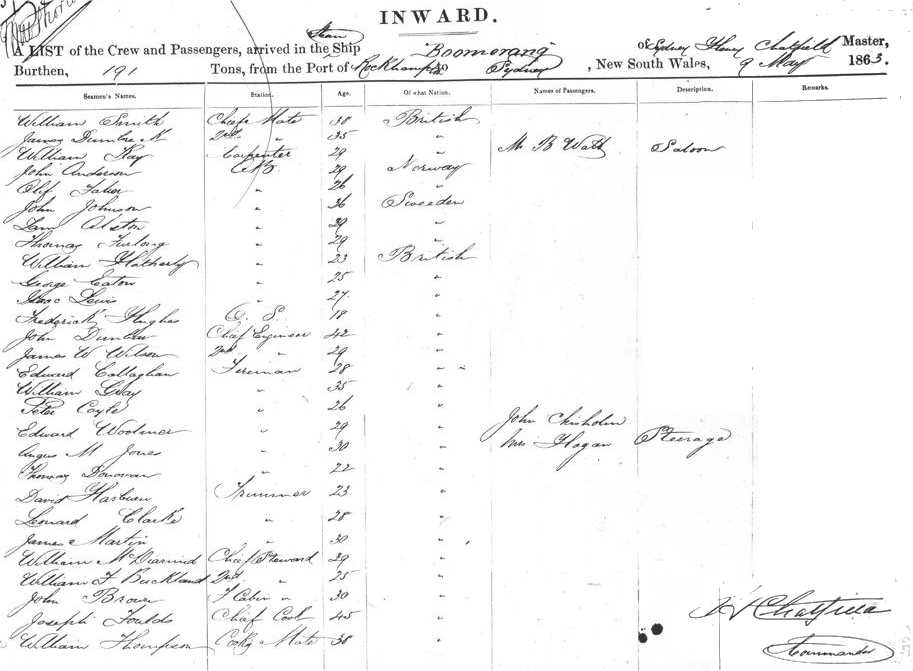 INWARD.
Steam
A LIST of the Crew and Passengers, arrived in the Ship Boomerang of Sydney Henry Chatfield Master,
Burthen, 191 Tons, from the Port of Rockhampton to Sydney, New South Wales, 9 May 1863.
Seamen's Names. Station. Age. Of what Nation. Names of Passengers. Description. Remarks.
William Smith Chief Mate 38 British
James 2nd " 35 "
William Ray Carpenter 29 " Mr B Watt Saloon
John Anderson AB 29 Norway
Olif " 26 "
John Johnson " 36 Sweeden
Alston " 29 "
Thomas Furlong " 29 "
William Hatherly " 23 British
George Eaton " 25 "
Isaac Lewis " 27 "
Frederick Hughes O. S. 18 "
John Chief Engineer 42 "
James W Wilson 2nd " 29 "
Edward Callaghan Fireman 28 "
William Gray " 35 "
Peter Coyle " 26 "
John Chisholm
Edward Woolmer " 29 "
Mrs Hagan Steerage
Angus M Jones " 30 "
Thomas Donovan " 22 "
David Trimmer 23 "
Leonard Clarke " 28 "
James Martin " 30 "
William McDiarmid Chief Steward 29 "
William F Buckland 2nd " 25 "
John Brown F Cabin " 30 "
Joseph Foulds Chief Cook 45 "
H Chatfield
William Thompson Cooks Mate 38 "
Commander